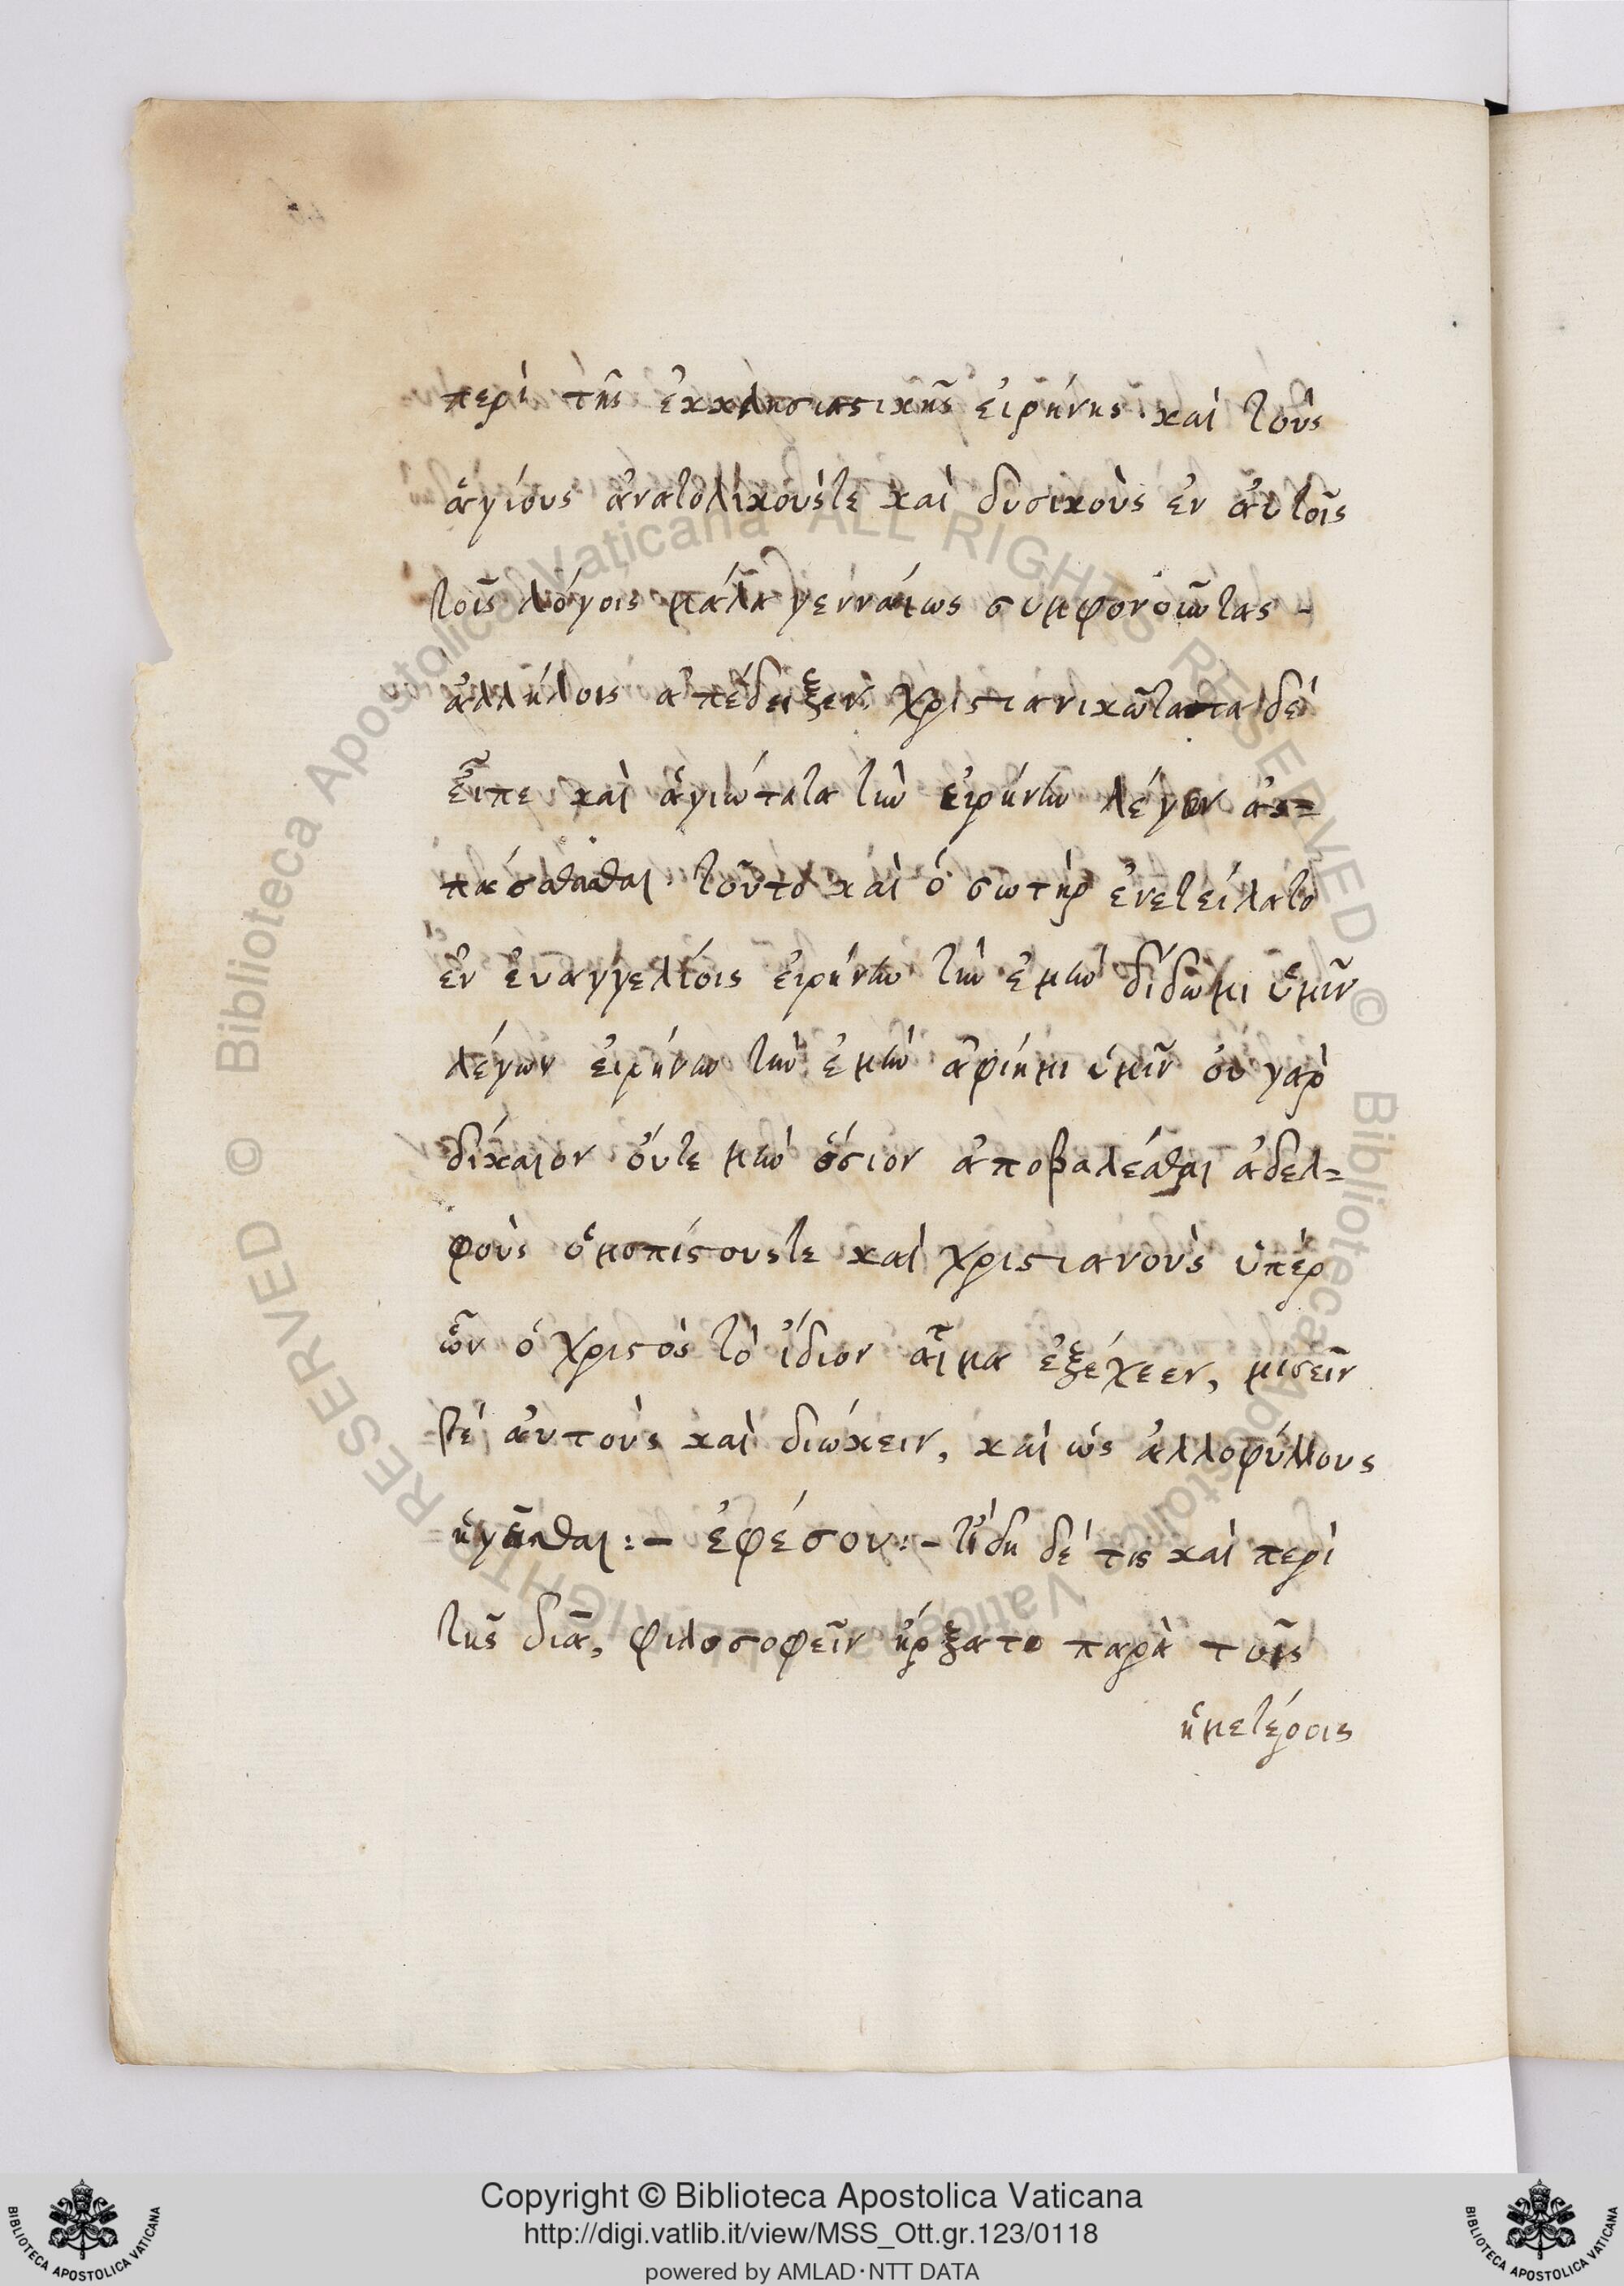 περὶ τῆς ἐκκλησιαστικῆς εἰρήνης· καὶ τοὺς
ἁγίους ἀνατολικούστε καὶ δυσικοὺς ἐν ἀυτοῖς
τοῖς λόγοις μάλα γενναίως συμφονοῶντας
ἀλλήλοις ἀπέδειξεν. χριστιανικῶτατα δὲ
εἶπε καὶ ἁγιώτατα τὴν εἰρήνην λέγον ἀσ=
πάσασθαι· τοῦτο καὶ ὁ σωτὴρ ἐνετείλατο
ἐν ἐυαγγελίοις εἰρήνην τὴν ἐμὴν δίδωμι ὑμῖν
λέγων εἰρήνην τὴν ἐμὴν ἀφίημι ὑμῖν οὐ γὰρ
δίκαιον ὄυτε μὴν ὅσιον ἀποβαλέσθαι ἀδελ=
φοὺς ὁμοπίστουστε καὶ χριστιανοὺς ὑπὲρ
ὧν ὁ χριστὸς τὸ ἴδιον αἷμα ἐξέχεεν, μισεῖν
τὲ ἀυτοὺς καὶ διώκειν, καὶ ὡς ἀλλοφύλλους
ἡγεῖσθαι:– ἐφέσου:– ἤδη δέ τις καὶ περὶ
τῆς διὰ, φιλοσοφεῖν ἤρξατο παρὰ τοῖς
ἡμετέροις
Copyright © Biblioteca Apostolica Vaticana
http://digi.vatlib.it/view/MSS_Ott.gr.123/0118
powered by AMLAD·NTT DATA
BIBLIOTECA APOSTOLICA VATICANA
BIBLIOTECA APOSTOLICA VATICANA
© Biblioteca Apostolica Vaticana ALL RIGHTS RESERVED © Biblioteca Apostolica Vaticana ALL RIGHTS RESERVED